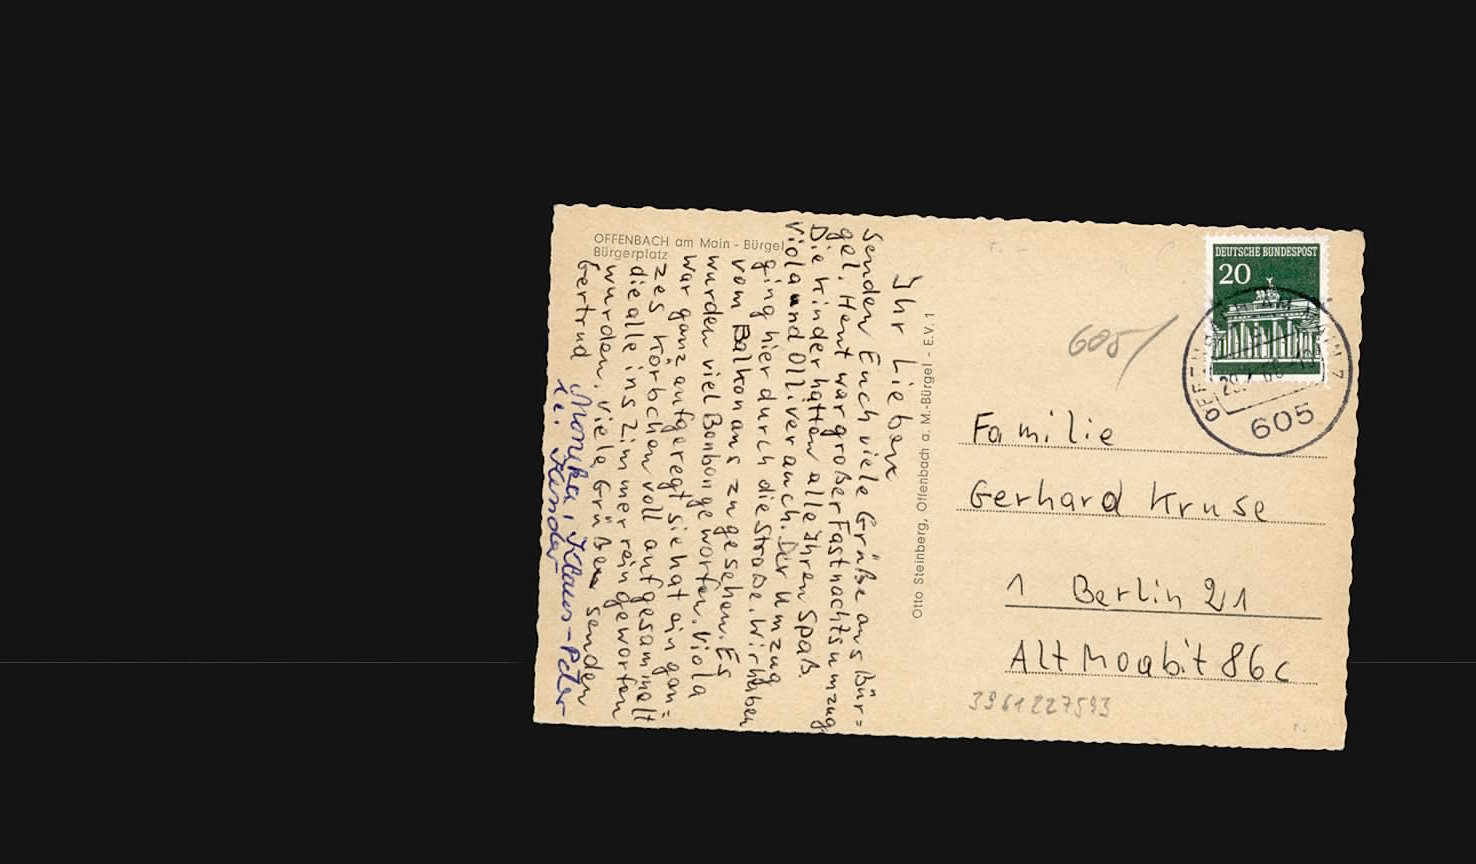 OFFENBACH am Main - Bürgel
Bürgerplatz
Ihr Lieben
senden Euch viele Grüße aus Bür=
gel. Heut war großer Fastnachtsumzug
Die Kinder hatten alle Ihren Spaß.
Viola und Olliver auch. Der Umzug
ging hier durch die Straße. Wir haben
vom Balkon aus zugesehen. Es
wurden viel Bonbon geworfen. Viola
war ganz aufgeregt sie hat ein gan=
zes Körbchen voll aufgesammelt
die alle ins Zimmer rein geworfen
wurden. Viele Grüße senden
Gertrud Monika, Klaus-Peter
Otto Steinberg, Offenbach a. M.-Bürgel - E.V. 1
DEUTSCHE BUNDESPOST
20
605
605
Familie
Gerhard Kruse
1 Berlin 21
Alt Moabit 86c
3961227593